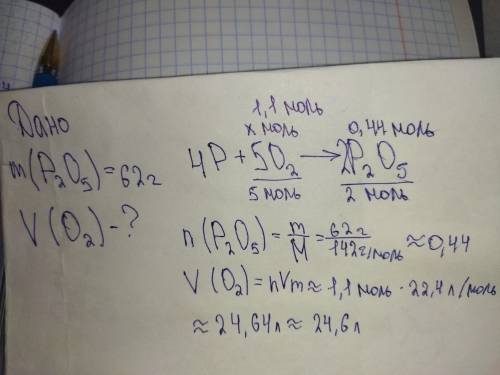 Дано
m(P₂O₅)=62г
V(O₂)-?
1,1 моль
x моль 0,44 моль
4P + 5O₂ → 2P₂O₅
5 моль 2 моль
n(P₂O₅)=m/M=62г/142г/моль≈0,44
V(O₂)=nVm≈1,1моль·22,4л/моль
≈24,64л≈24,6л